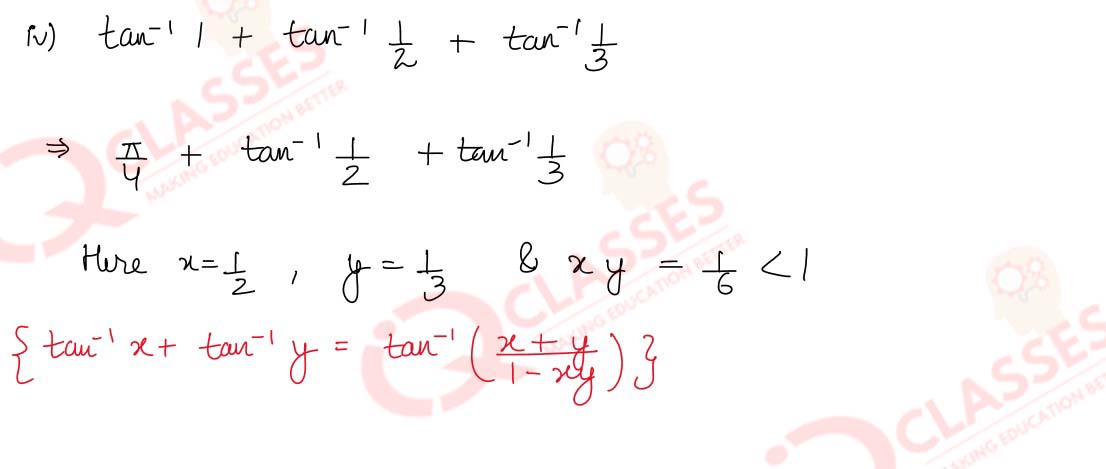 iv) tan⁻¹ 1 + tan⁻¹ 1/2 + tan⁻¹ 1/3
⇒ π/4 + tan⁻¹ 1/2 + tan⁻¹ 1/3
Here x = 1/2 , y = 1/3 & xy = 1/6 < 1
{ tan⁻¹ x + tan⁻¹ y = tan⁻¹ ( (x + y)/(1 - xy) ) }
CLASSES
MAKING EDUCATION BETTER
CLASSES
MAKING EDUCATION BETTER
CLASSES
MAKING EDUCATION BE